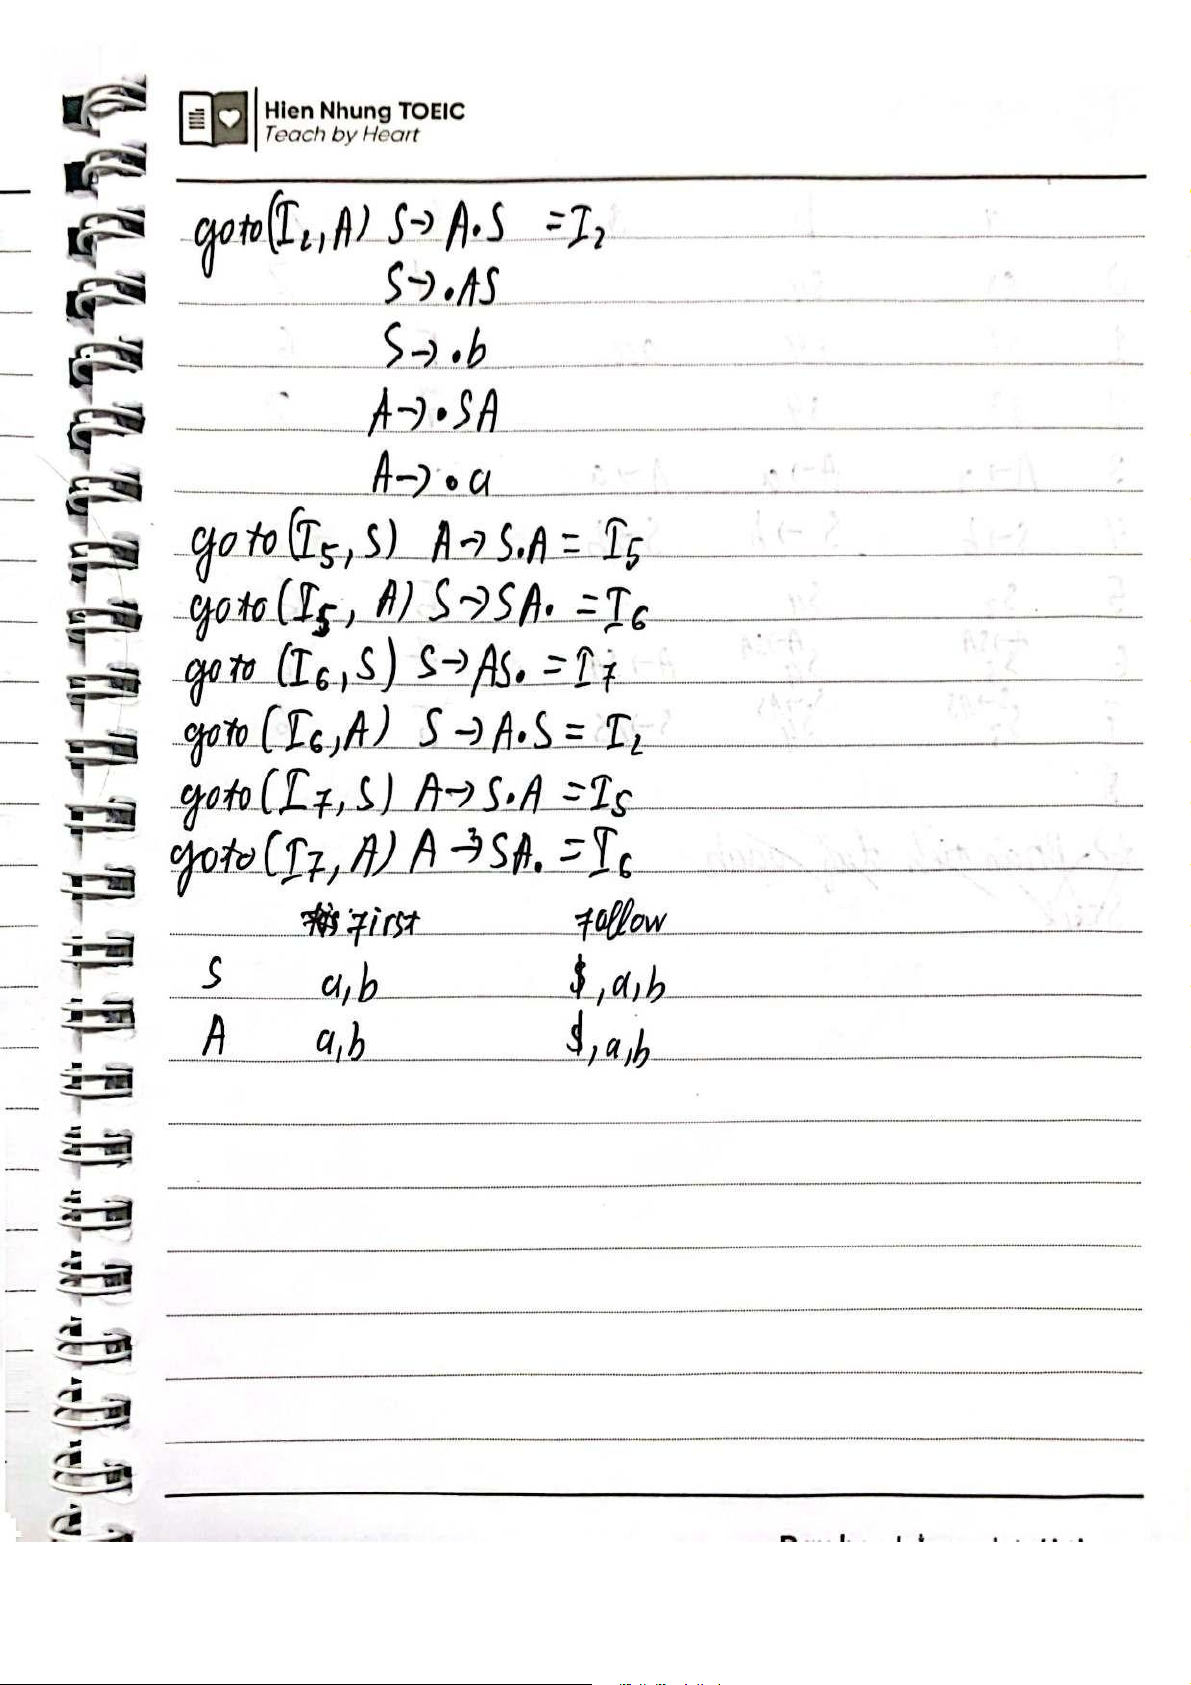 Hien Nhung TOEIC
Teach by Heart
goto(I₂,A) S→A.S =I₂
S→.AS
S→.b
A→.SA
A→.a
goto(I5,S) A→S.A = I5
goto(I5, A) S→SA. =I6
goto (I6,S) S→AS. =I7
goto (I6,A) S→A.S= I2
goto(I7,S) A→S.A =I5
goto(I7,A) A→SA. =I6
First Follow
S a,b $,a,b
A a,b $,a,b